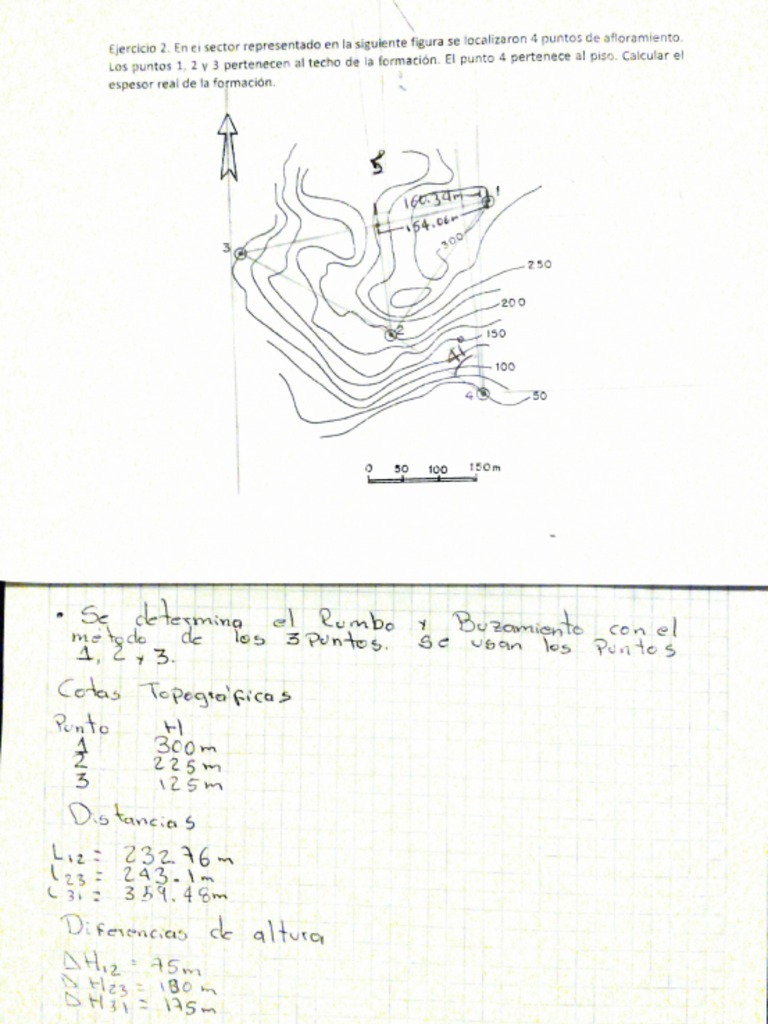 Ejercicio 2. En el sector representado en la siguiente figura se localizaron 4 puntos de afloramiento.
Los puntos 1, 2 y 3 pertenecen al techo de la formación. El punto 4 pertenece al piso. Calcular el
espesor real de la formación.
5
1
160.34m
154.06m
3
300
250
2
200
150
100
4
50
0 50 100 150m
• Se determina el Rumbo y Buzamiento con el
método de los 3 Puntos. Se usan los Puntos
1, 2 y 3.
Cotas Topográficas
Punto H
1 300m
2 225m
3 125m
Distancias
L12 = 232.76m
L23 = 243.1m
L31 = 359.48m
Diferencias de altura
ΔH12 = 75m
ΔH23 = 100m
ΔH31 = 175m